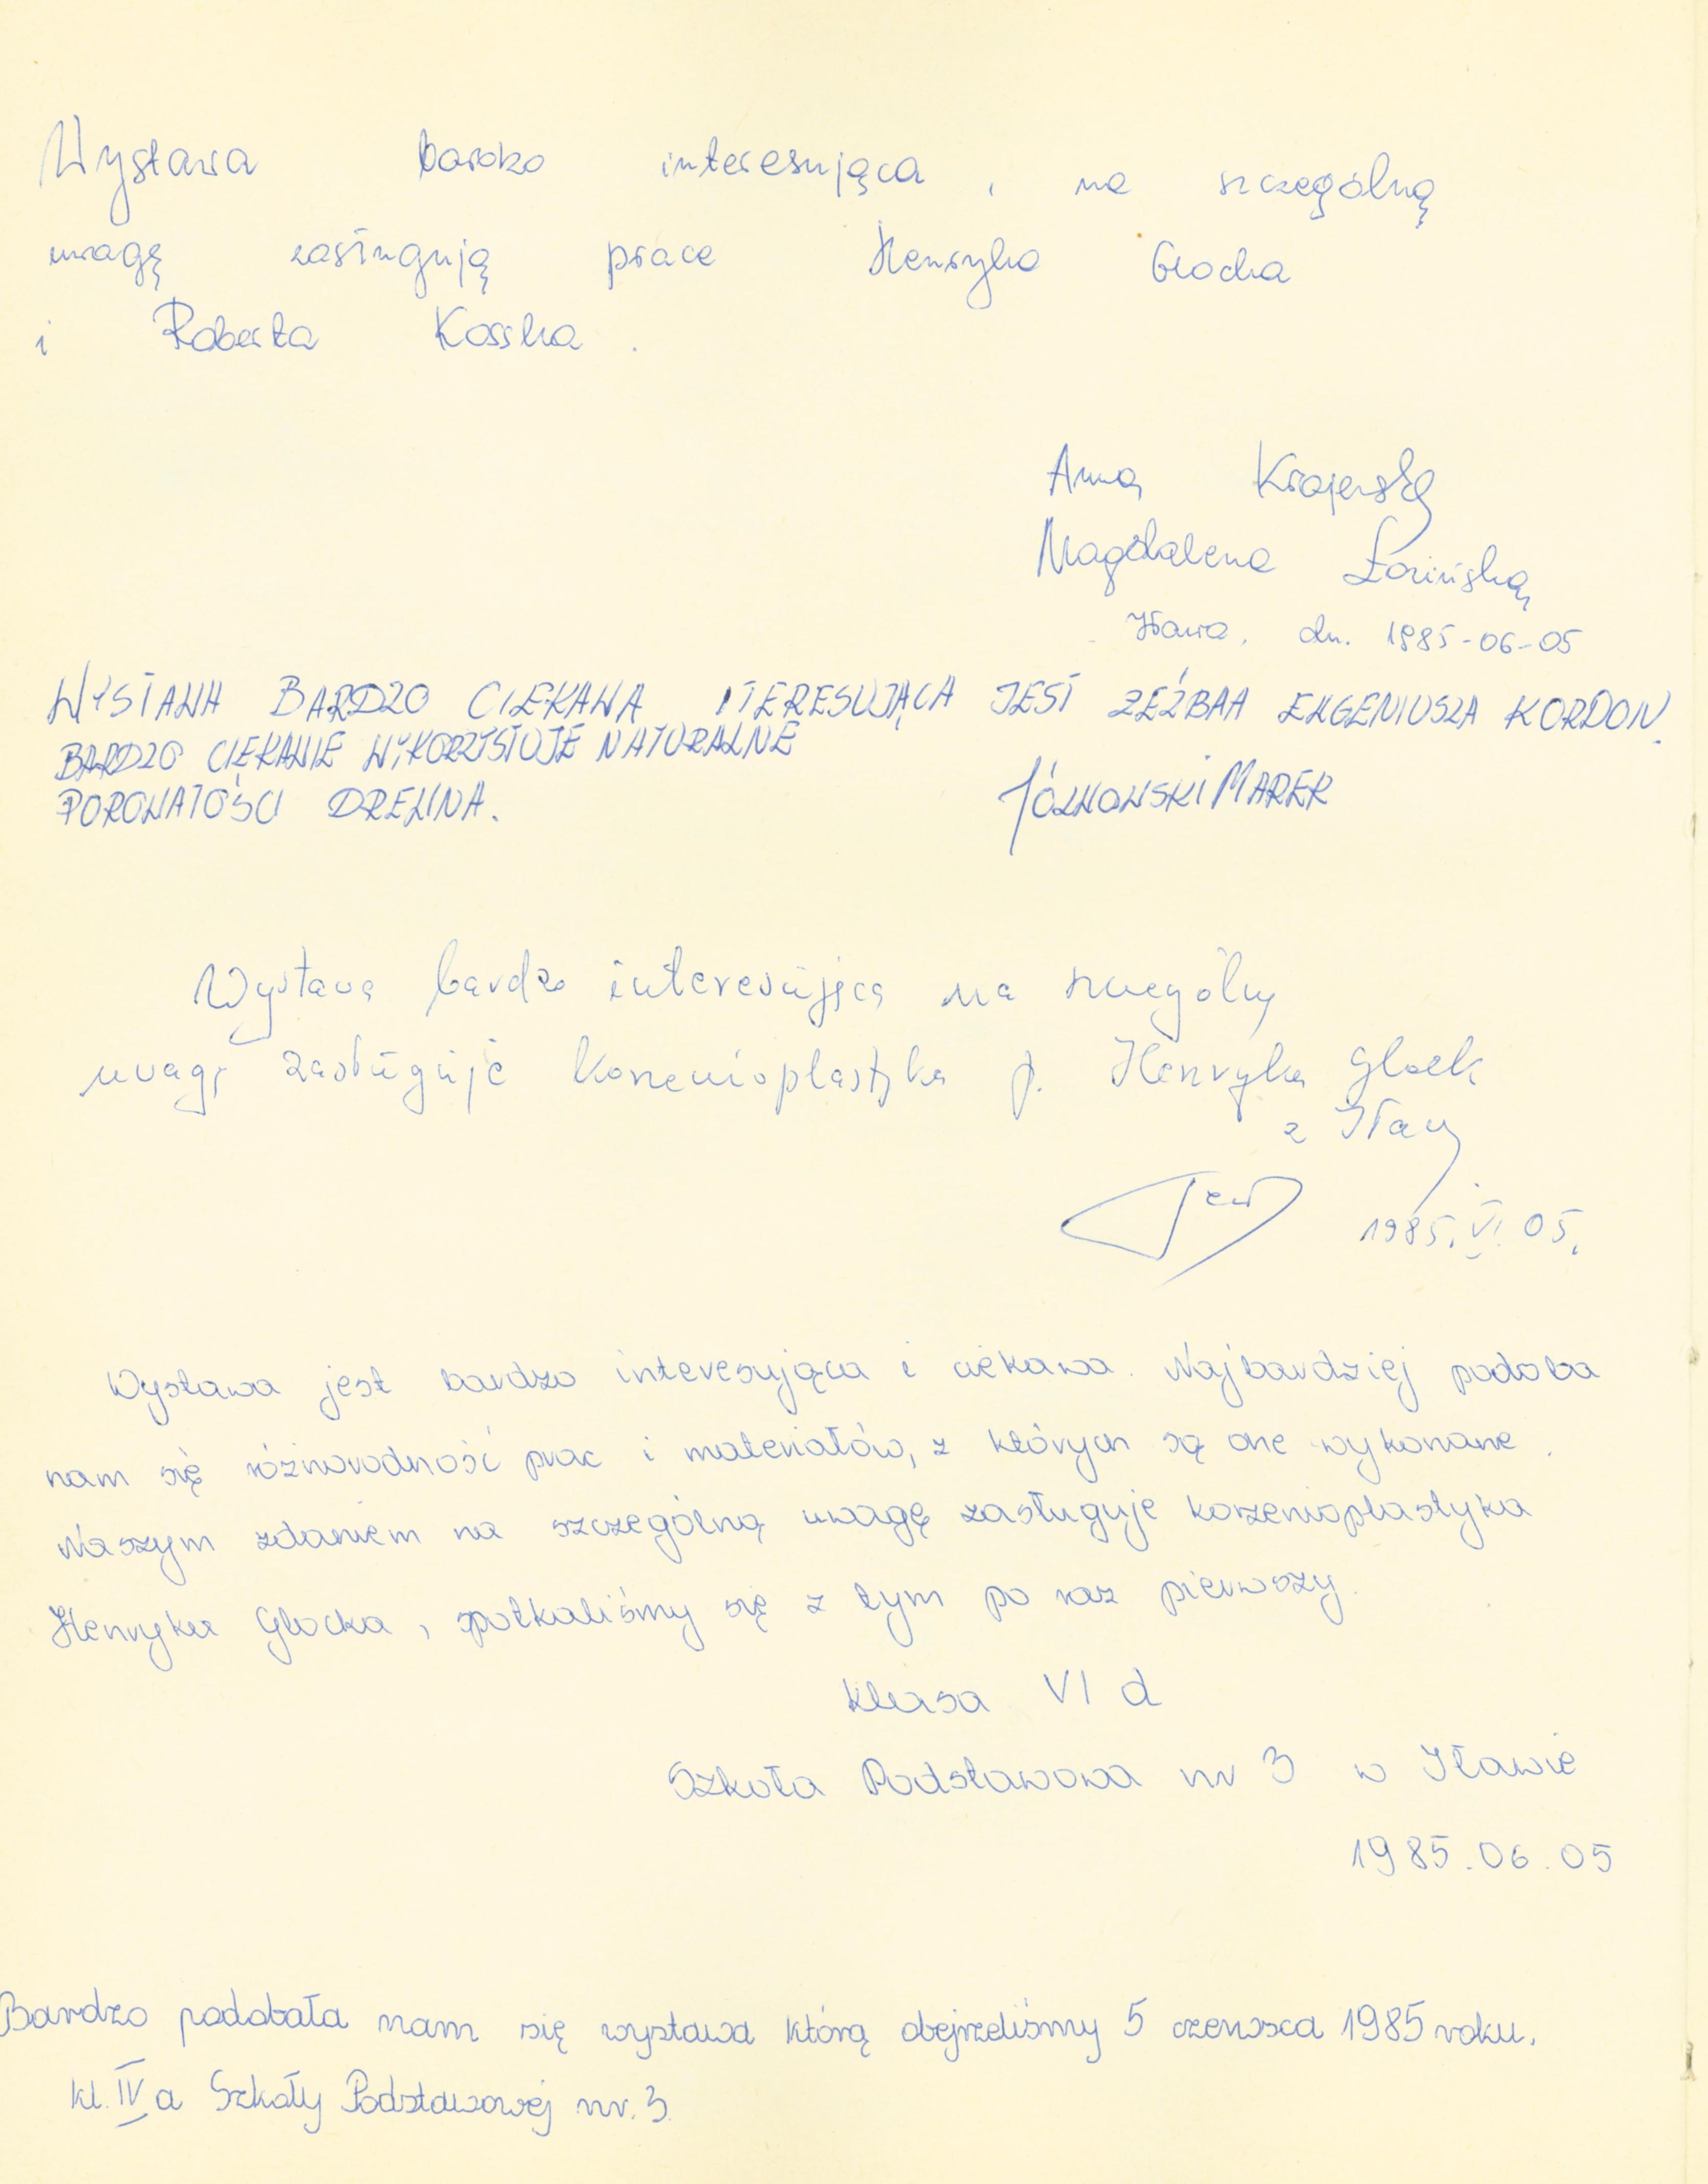 Wystawa bardzo interesująca, na szczególną
uwagę zasługują prace Henryka Glocka
i Roberta Kosska.
Anna Krajewska
Magdalena
Iława, dn. 1985-06-05
WYSTAWA BARDZO CIEKAWA ITERESUJĄCA JEST ZEŹBAA EUGENIUSZA KORDON.
BARDZO CIEKAWIE WYKORZYSTUJE NATURALNE
POROWATOŚCI DREWNA.
MAREK
Wystawa bardzo interesująca na szczególną
uwagę zasługuje korzenioplastyka p. Henryka Glock
z Iławy
1985.VI.05.
Wystawa jest bardzo interesująca i ciekawa. Najbardziej podoba
nam się różnorodność prac i materiałów, z których są one wykonane.
Naszym zdaniem na szczególną uwagę zasługuje korzenioplastyka
Henryka Glocka, spotkaliśmy się z tym po raz pierwszy.
Klasa VI d
Szkoła Podstawowa nr 3 w Iławie
1985.06.05
Bardzo podobała nam się wystawa którą obejrzeliśmy 5 czerwca 1985 roku.
kl. IV a Szkoły Podstawowej nr. 3.